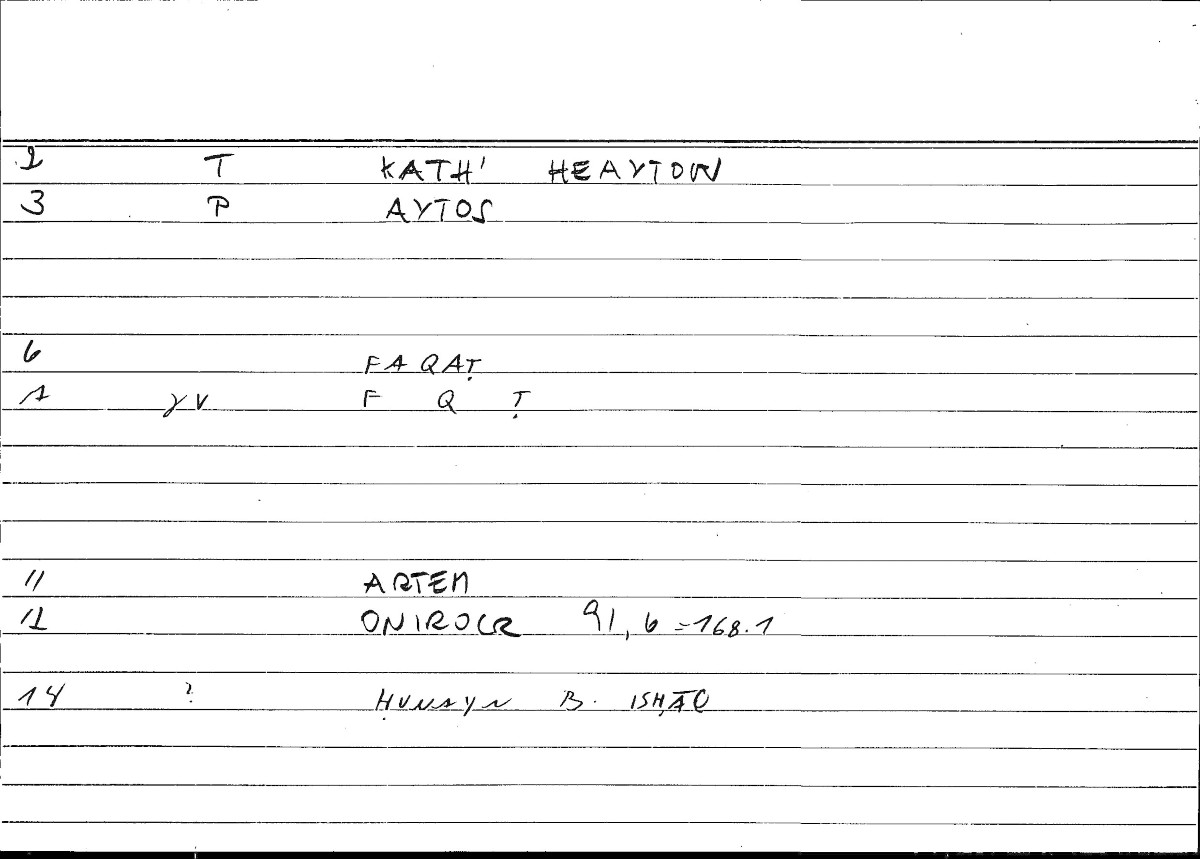 2 T KATH' HEAYTON
3 P AYTOS
6 FAQAṬ
1 γV F Q Ṭ
11 ARTEM
12 ONIROCR 91, 6 = 168.1
14 ? ḤUNAYN B. ISḤĀQ